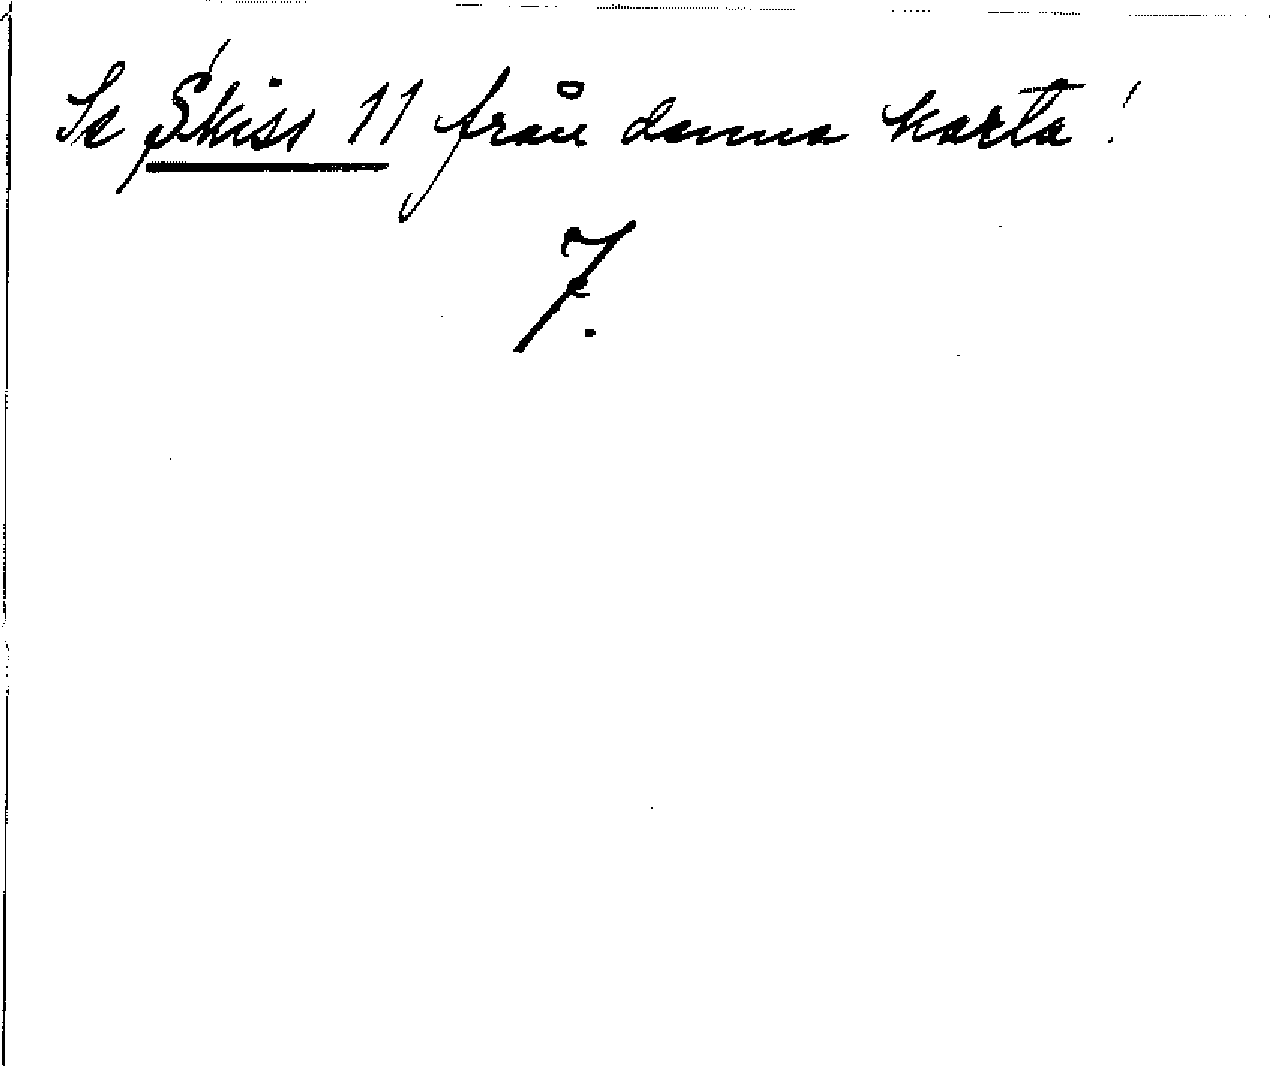 Se Skiss 11 från denna karta!
7.